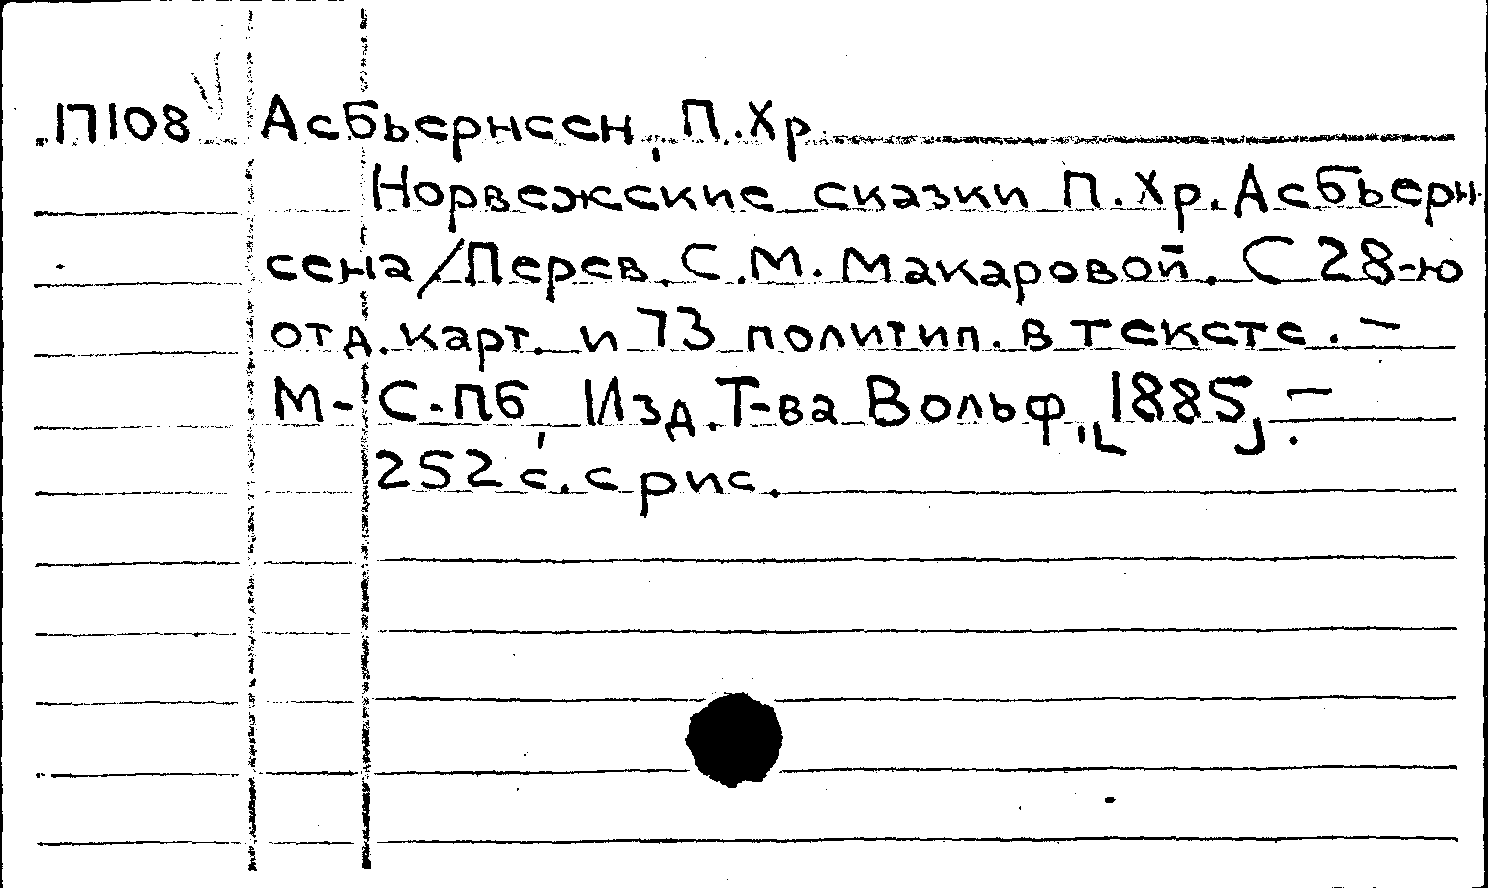 17108 Асбьернсен, П.Хр.
Норвежские сказки П.Хр.Асбьерн-
сена/Перев. С.М.Макаровой. С 28-ю
отд.карт. и 73 политип. в тексте. —
М.-С.-Пб, Изд.Т-ва Вольф, [1885]. —
252 с. с рис.